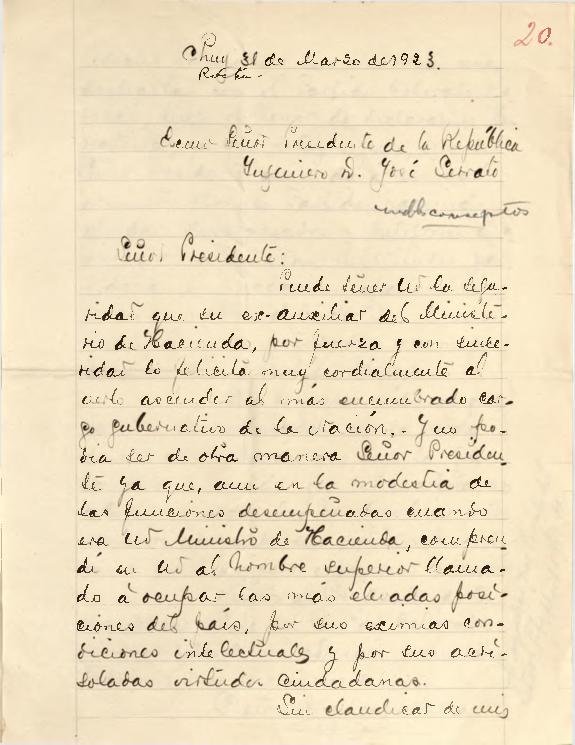 20.
Chuy 31 de Marzo de 1923.
Exmo Señor Presidente de la República
Ingeniero D. José Serrato
conseptos
Señor Presidente:
Puede téner Ud la segu-
ridad que su ex-auxiliar del Ministé-
rio de Hacienda, por fuerza y con since-
ridad lo felicita muy cordialmente al
verlo ascender al más encumbrado car-
go gubernativo de la nación.- Y no po-
dia ser de otra manera Señor Presiden-
te ya que, aun en la modestia de
las funciones desempeñadas cuando
era Ud Ministro de Hacienda, compren-
dí en Ud al hombre superior llama-
do á ocupar las más elevadas posi-
ciones del país, por sus eximias con-
diciones intelectuales y por sus acri-
soladas virtudes ciudadanas.
Sin claudicar de mis